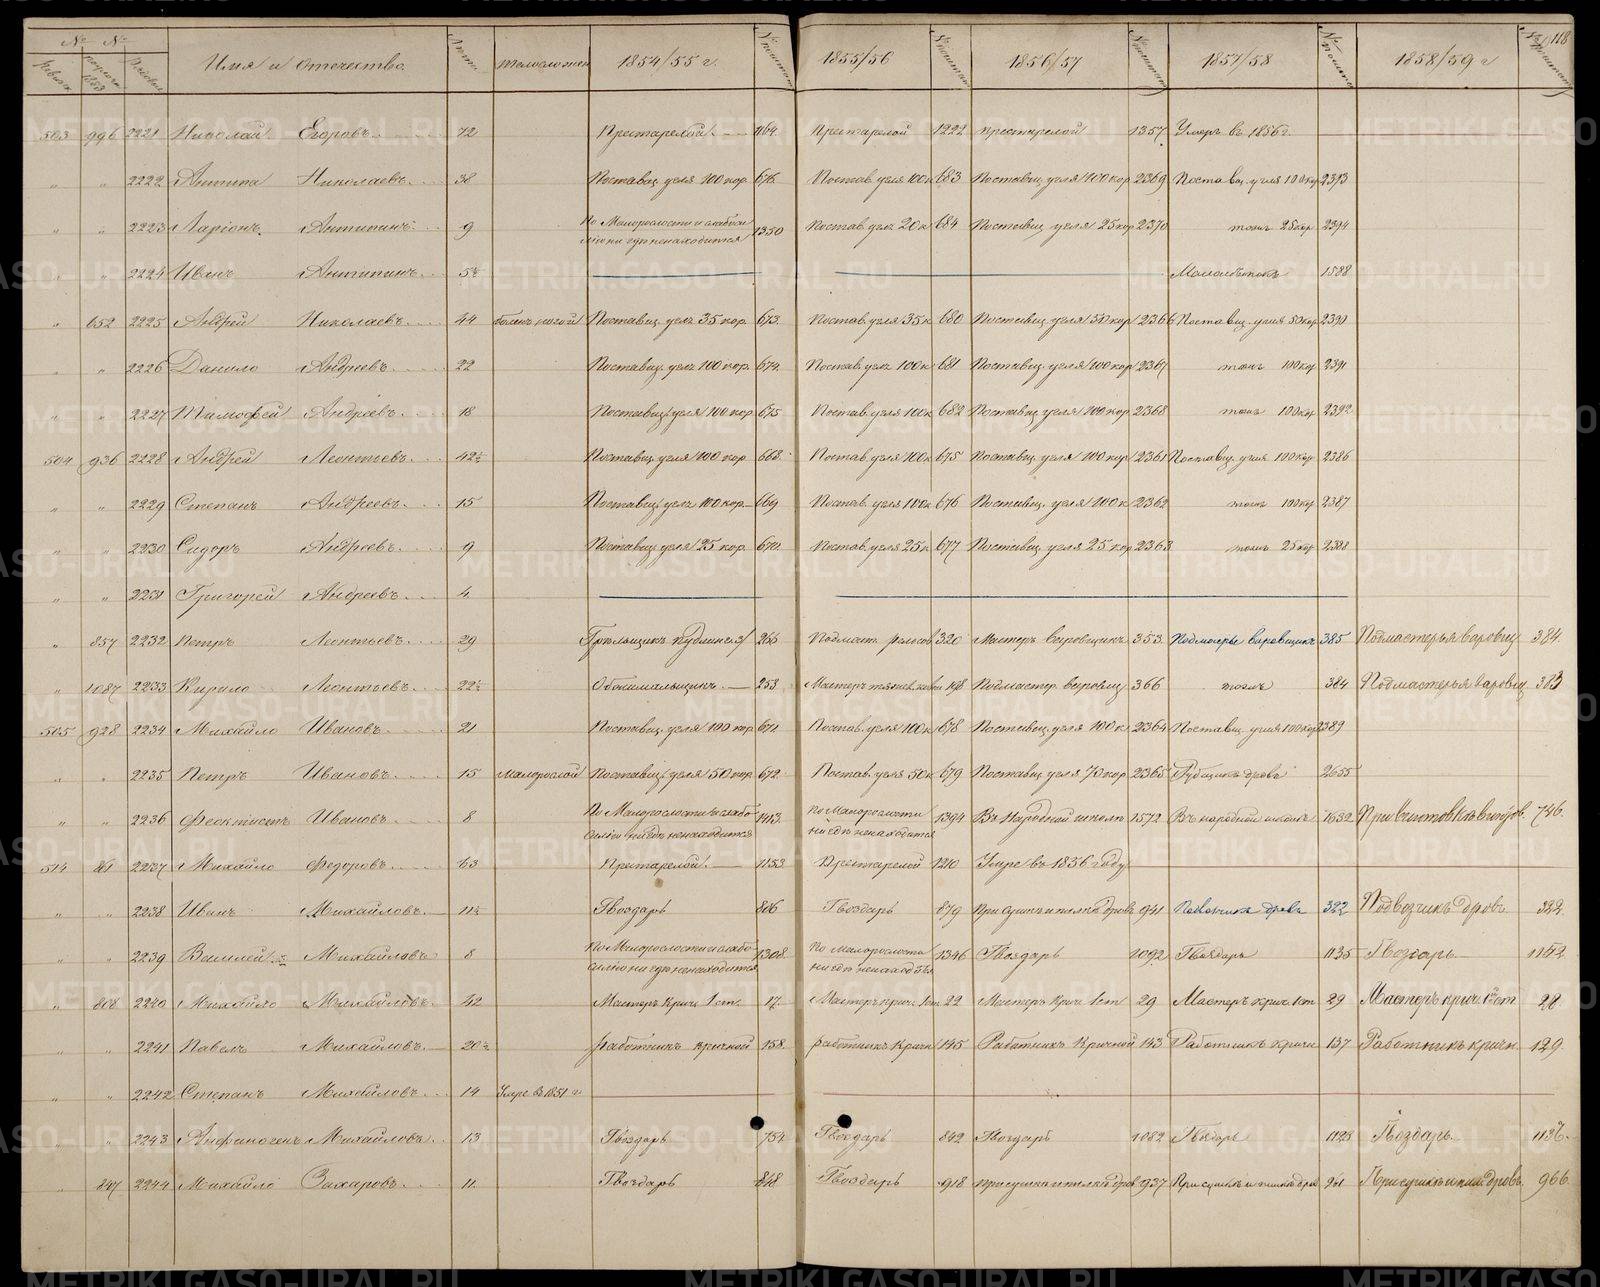 № № Имя и Отчество Лета телосложен 1854/55 г. 1855/56 1856/57 1857/58 1858/59 г 118
503 996 2221 Николай Егоровъ 72 Престарелый 1164 престарелой 1222 престарелой 1357 Умеръ въ 1856 г.
„ „ 2222 Антипа Николаевъ 38 Поставщ. угля 100 кор. 676 Постав. угля 100 к 683 Поставщ. угля 100 кор 2369 Поставщ. угля 100 кор 2393
„ „ 2223 Ларіонъ Антипинъ 9 По Малорослости и слабоси-
лію ни гдѣ ненаходится 1350 Постав. угля 20 к 684 Поставщ. угля 25 кор 2370 тожъ 25 кор 2394
„ „ 2224 Иванъ Антипинъ 5½ Малолѣтокъ 1588
„ 652 2225 Андрей Николаевъ 44 боленъ ногой Поставщ. угля 35 кор. 673 Постав. угля 35 к 680 Поставщ. угля 50 кор 2366 Поставщ. угля 50 кор 2390
„ „ 2226 Данило Андреевъ 22 Поставщ. угля 100 кор. 674 Постав. угля 100 к 681 Поставщ. угля 100 кор 2367 тожъ 100 кор 2391
„ „ 2227 Тимофей Андреевъ 18 Поставщ. угля 100 кор 675 Постав. угля 100 к 682 Поставщ. угля 100 кор 2368 тожъ 100 кор 2392
504 936 2228 Андрей Леонтьевъ 42½ Поставщ. угля 100 кор 668 Постав. угля 100 к 675 Поставщ. угля 100 кор 2361 Поставщ. угля 100 кор 2386
„ „ 2229 Степанъ Андреевъ 15 Поставщ. угля 100 кор. 669 Постав. угля 100 к 676 Поставщ. угля 100 к 2362 тожъ 100 кор 2387
„ „ 2230 Сидоръ Андреевъ 9 Поставщ. угля 25 кор. 670 Постав. угля 25 к 677 Поставщ. угля 25 кор 2363 тожъ 25 кор 2388
„ „ 2231 Григорей Андреевъ 4
„ 857 2232 Петръ Леонтьевъ 29 265 Подмаст. рельсов 320 Мастеръ варовщикъ 353 Подмастерье варовщикъ 385 Подмастерья варовщ 384
„ 1087 2233 Кирило Леонтьевъ 22½ Обжимальщикъ 253 Мастеръ 198 Подмастер. варовщ 366 тожъ 384 Подмастерья варовщ 383
505 928 2234 Михайло Ивановъ 21 Поставщ. угля 100 кор 671 Постав. угля 100 к 678 Поставщ. угля 100 к 2364 Поставщ. угля 100 кор 2389
„ „ 2235 Петръ Ивановъ 15 малорослой Поставщ. угля 50 кор. 672 Постав. угля 50 к 679 Поставщ угля 70 кор 2365 Рубщикъ дровъ 2655
„ „ 2236 Феоктистъ Ивановъ 8 По Малорослости и слабо-
силію ни гдѣ ненаходится 1413 По Малорослости
ни гдѣ ненаходится 1394 Въ Народной школѣ 1572 Въ народной школѣ 1632 746
514 2237 Михайло Федоровъ 63 Престарелой 1153 Престарелой 1210 Умре въ 1856 году
„ „ 2238 Иванъ Михайловъ 11½ Гвоздарь 806 Гвоздарь 879 При сушкѣ и пилкѣ дровъ 941 Подвозчикъ дровъ 322 Подвозчикъ дровъ 322
„ „ 2239 Василей Михайловъ 8 По Малорослости и слабо-
силію ни гдѣ ненаходится 1308 По малорослости
ни гдѣ ненаходится 1346 Гвоздарь 1092 Гвоздарь 1135 Гвоздарь 1152
„ 808 2240 Михайло Михайловъ 42 Мастеръ крич. 1 ст. 17 Мастеръ крич. 1 ст 22 Мастеръ крич. 1 ст 29 Мастеръ крич. 1 ст 29 Мастеръ крич. 1й ст 28
„ „ 2241 Павелъ Михайловъ 20½ работникъ кричной 158 работникъ кричн 145 Работникъ Кричной 143 Работникъ кричн 137 Работникъ кричн 129
„ „ 2242 Степанъ Михайловъ 14 Умре въ 1851 г
„ „ 2243 Анфиногенъ Михайловъ 13 Гвоздарь 754 Гвоздарь 842 Гвоздарь 1082 Гвоздарь 1123 Гвоздарь 1136
„ 847 2244 Михайло Захаровъ 11 Гвоздарь 818 Гвоздарь 918 При сушкѣ и пилкѣ дров 937 При сушкѣ и пилкѣ дро 961 При сушкѣ и пил дровъ 966
METRIKI.GASO-URAL.RU